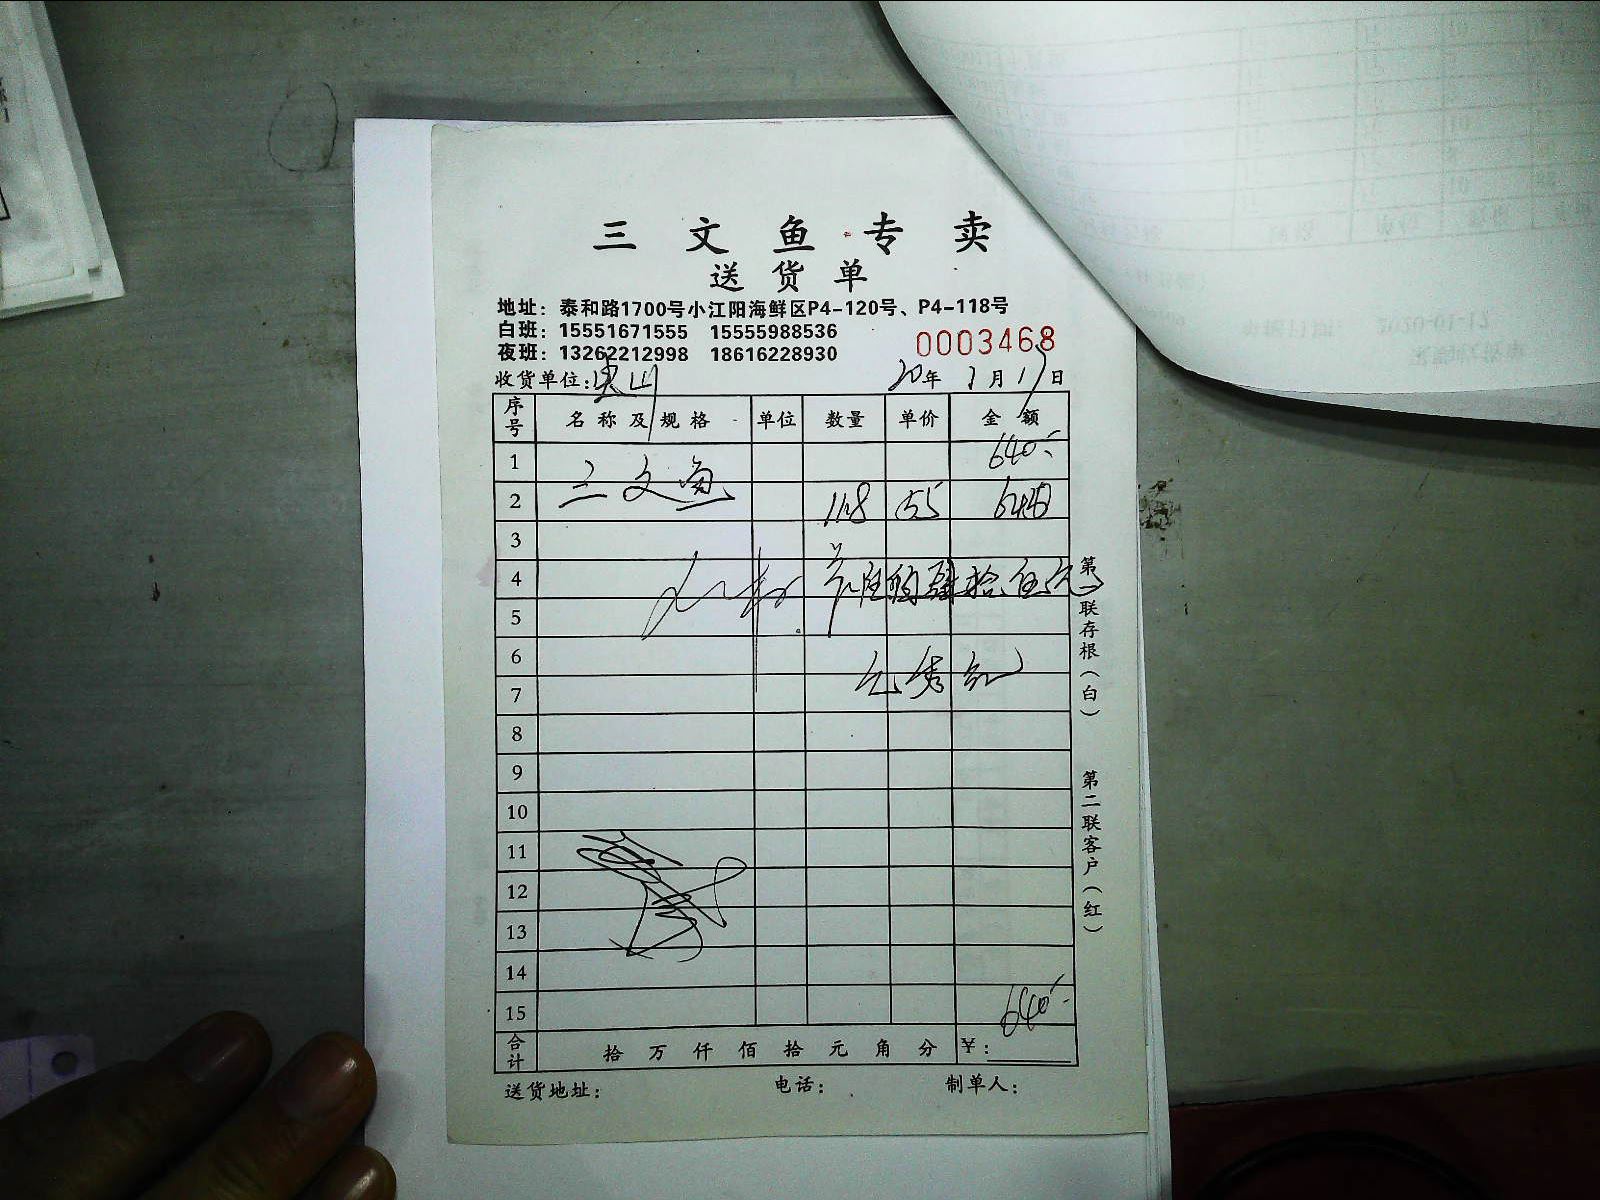 三文鱼专卖
送货单
地址：泰和路1700号小江阳海鲜区P4-120号、P4-118号
白班：15551671555 15555988536
夜班：13262212998 18616228930
0003468
收货单位： 20年 月17日
序号 名称及规格 单位 数量 单价 金额
1 640.-
2 三文鱼 11.8 55
3
4 拾伍元
5
6
7
8
9
10
11
12
13
14
15 640.-
合计 拾万仟佰拾元角分 ￥：
送货地址： 电话： 制单人：
第一联存根（白）
第二联客户（红）